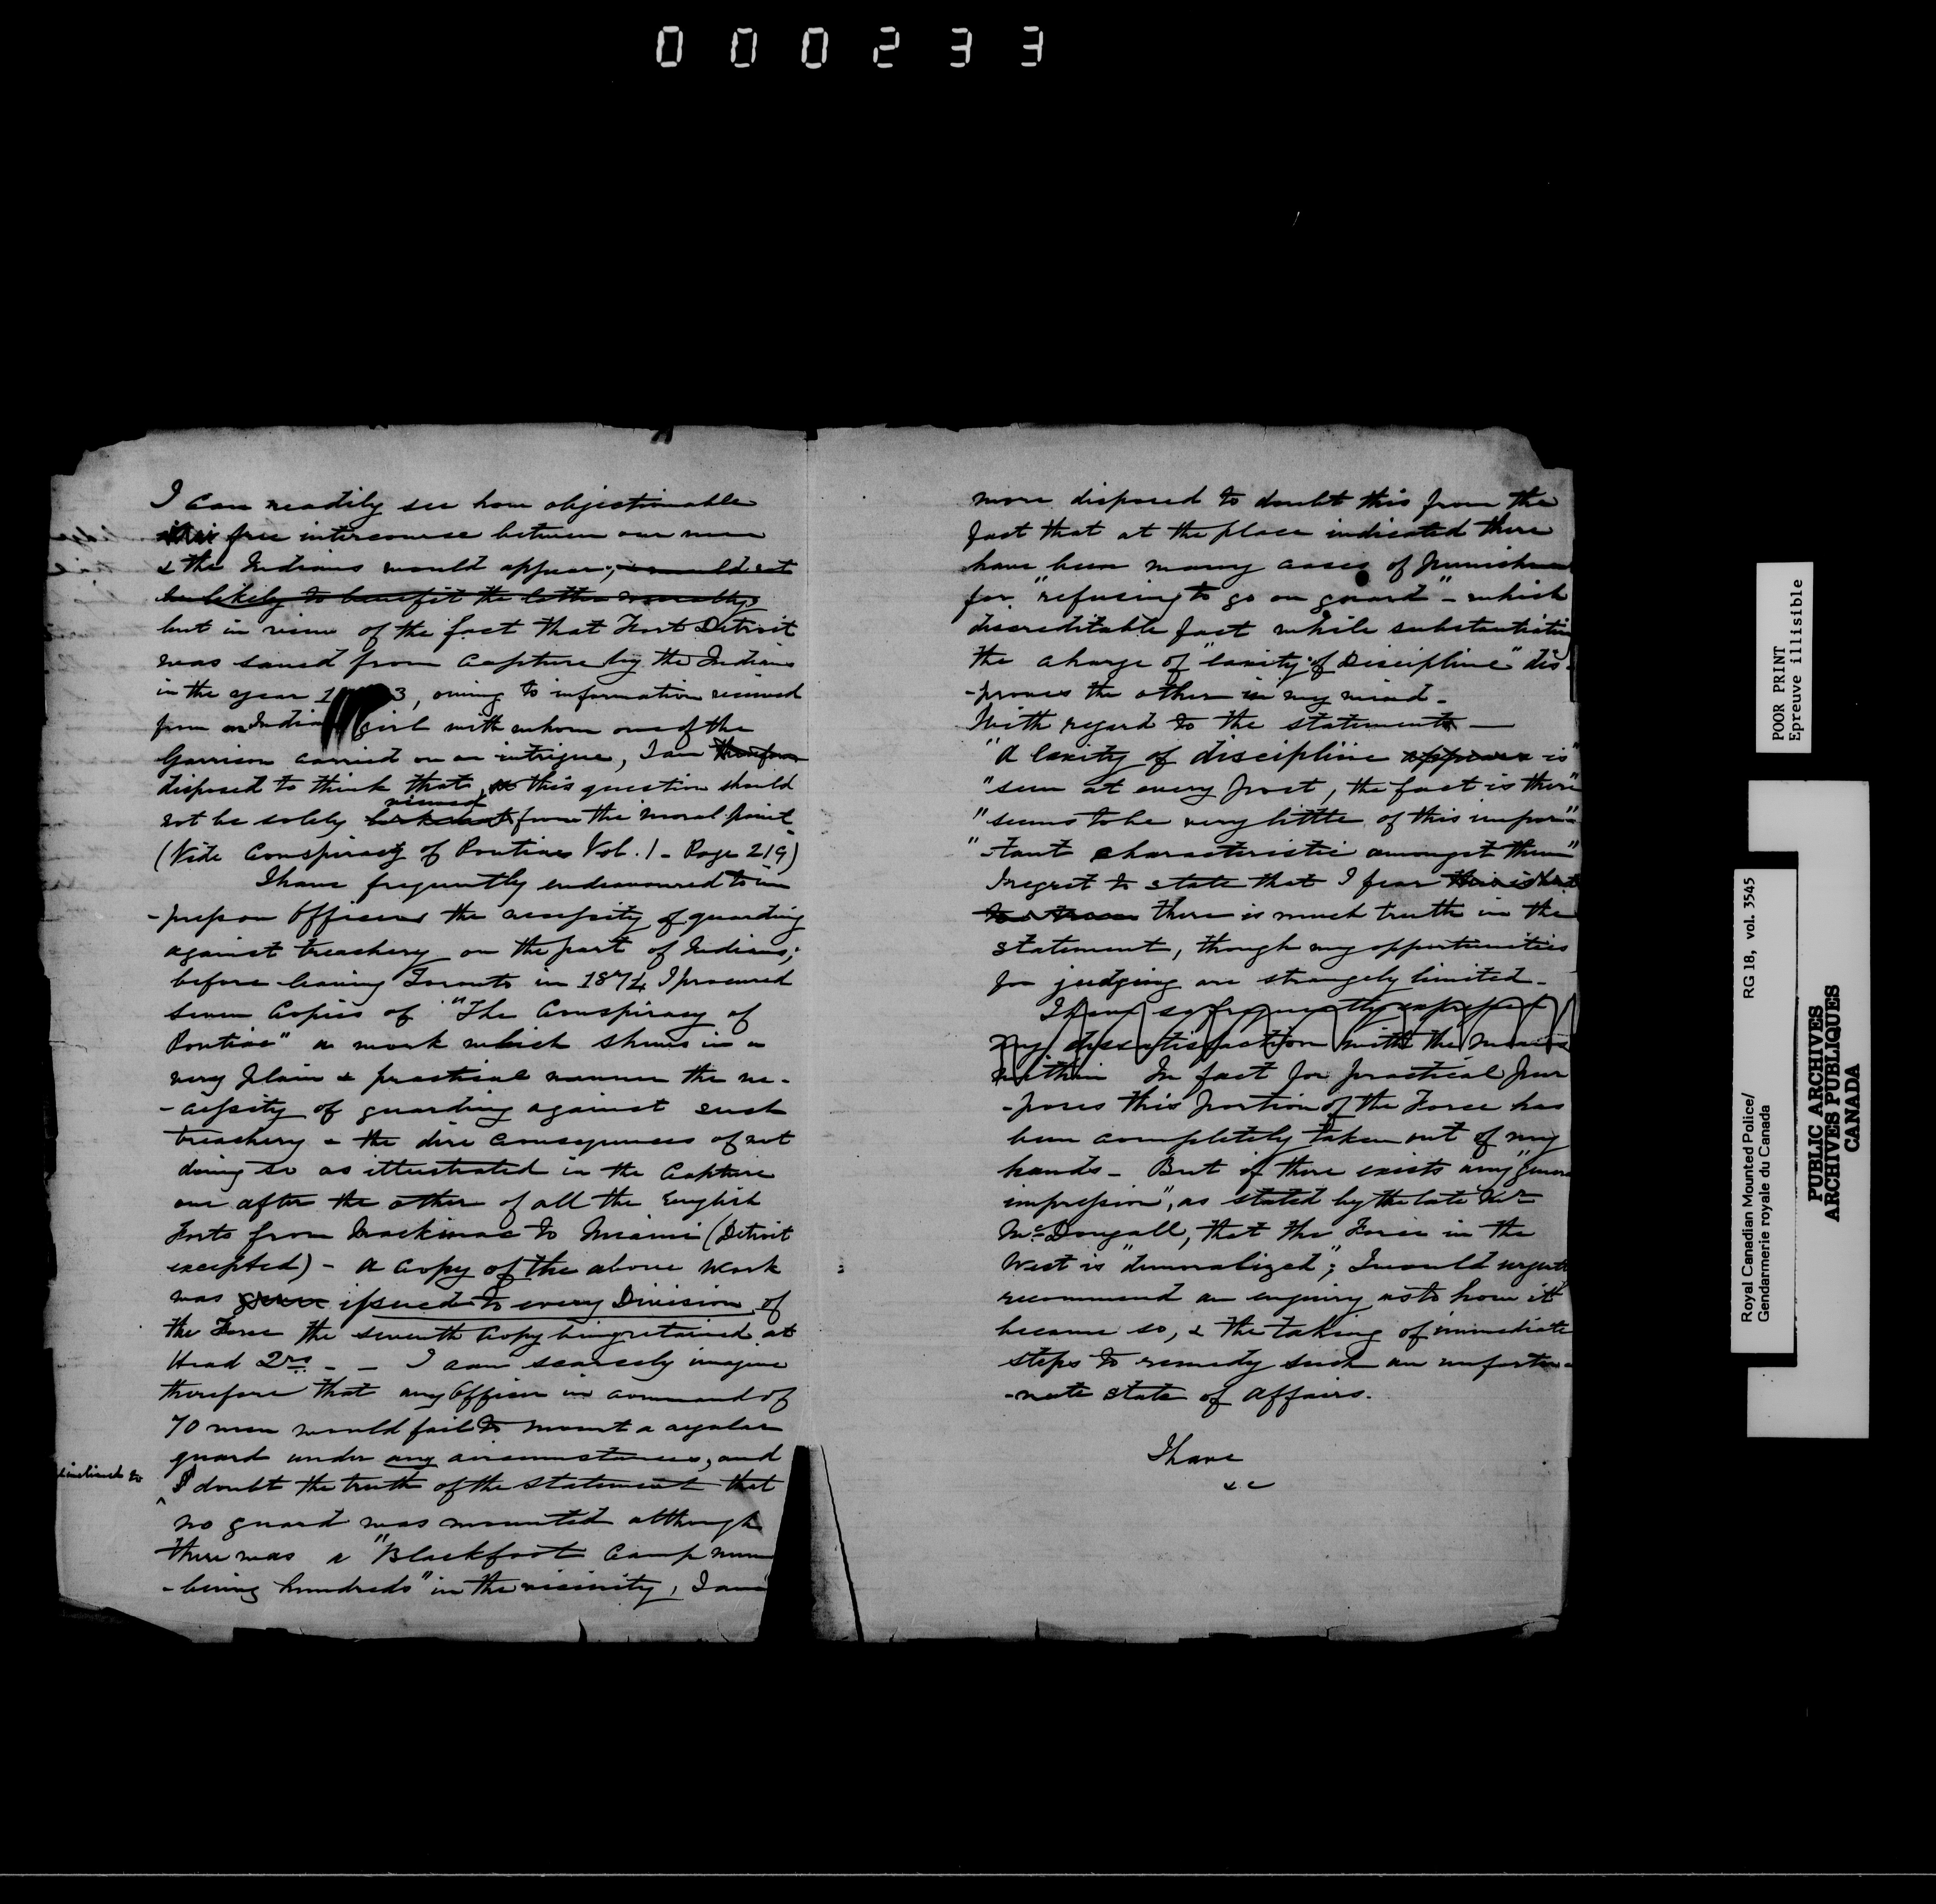 000233
I can readily see how objectionable
this free intercourse between our men
& the Indians would appear; would not
be likely to benefit the latter morally,
but in view of the fact that Fort Detroit
was saved from capture by the Indians
in the year 1 3, owing to information received
from an Indian Girl with whom one of the
Garrison carried on an intrigue, I am therefore
disposed to think that, this question should
viewed
not be solely from the moral point
(Vide Conspiracy of Pontiac Vol. 1 - Page 219)
I have frequently endeavoured to im
-press on Officers the necessity of guarding
against treachery on the part of Indians;
before leaving Toronto in 1874 I procured
seven Copies of "The Conspiracy of
Pontiac" a work which shows in a
very plain & practical manner the ne-
-cessity of guarding against such
treachery & the dire consequences of not
doing so as illustrated in the Capture
one after the other of all the English
Forts from Mackinac to Miami (Detroit
excepted) - A Copy of the above work
was given issued to every Division of
the Force the seventh Copy being retained at
Head Qrs - - I can scarcely imagine
therefore that any Officer in command of
70 men would fail to mount a regular
guard under any circumstances, and
inclined to
I doubt the truth of the statement that
^
no guard was mounted although
there was a "Blackfoot Camp num
-bering hundreds" in the vicinity, I am
more disposed to doubt this from the
fact that at the place indicated there
have been many cases of punishmen
for "refusing to go on guard" - which
discreditable fact while substantiatin
the charge of "laxity of Discipline" dis-
-proves the other in my mind -
With regard to the statement -
"A laxity of discipline appears is"
"seen at every post, the fact is there"
"seems to be very little of this impor-"
"-tant characteristic amongst them"
I regret to state that I fear this is but
too true there is much truth in the
statement, though my opportunities
for judging are strangely limited -
I have so frequently expressed
my dissatisfaction with the
within In fact for practical pur
-poses this portion of the Force has
been completely taken out of my
hands - But if there exists any "genera
impression", as stated by the late Mr
McDougall, that the Force in the
West is "demoralized"; I would urgent
recommend an enquiry as to how it
became so, & the taking of immediate
steps to remedy such an unfortu-
-nate state of affairs.
I have
&c
POOR PRINT
Epreuve illisible
Royal Canadian Mounted Police/ RG 18, vol. 3545
Gendarmerie royale du Canada
PUBLIC ARCHIVES
ARCHIVES PUBLIQUES
CANADA